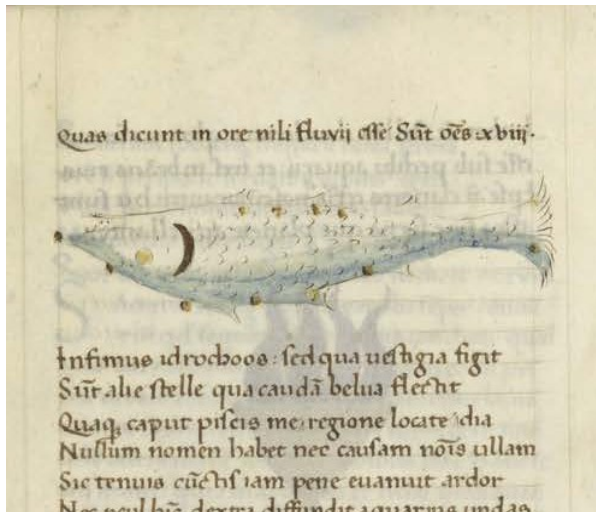 Quas dicunt in ore nili fluvij esse Sūt oēs xviij.
Infimus idrochoos: sed qua uestigia figit
Sūt alie stelle qua caudā belua flectit
Quaq; caput piscis me regione locate dia
Nullum nomen habet nec causam noīs ullam
Sic tenuis cūctis iam pene euanuit ardor
dextra diffundit aquarius undas